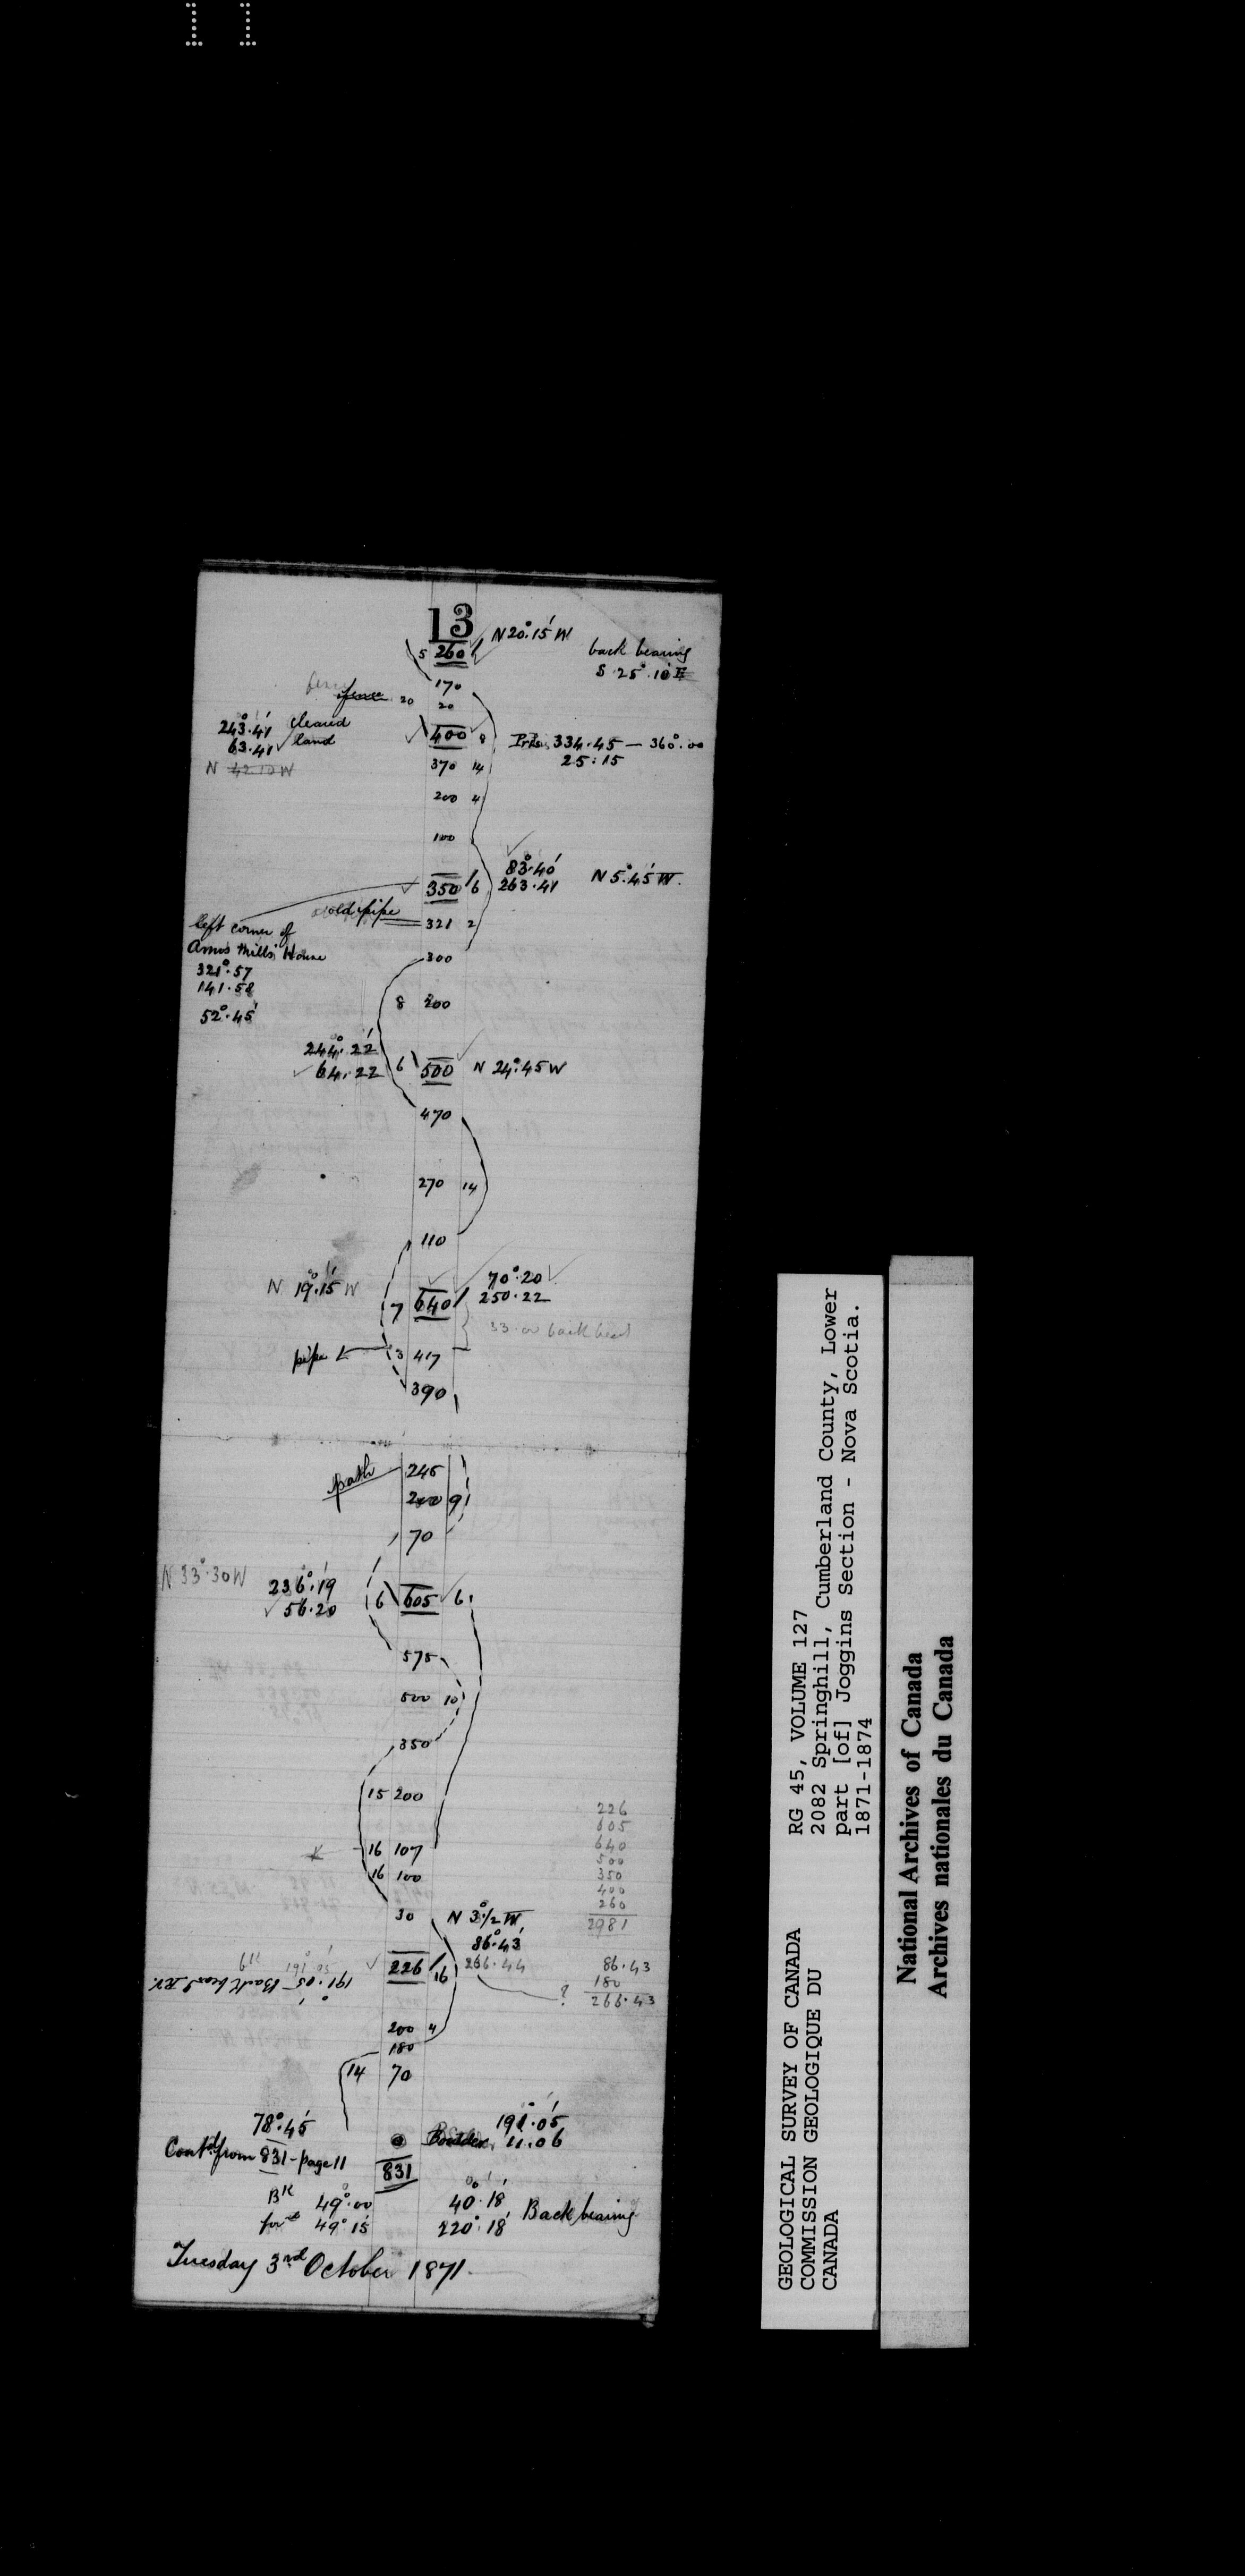 11
13
N 20°.15' W
5 260
back bearing
S 25°.10' E
170
fence
fence 20 20
243°.41' cleared
63.41 land
400 8
Prts. 334.45 — 360°.00
25:15
N 42.10 W
370 14
200 4
100
83°.40'
350 6 263.41 N 5°.45' W.
old pipe 321 2
left corner of
Amos Mills' House
321°.57
141.58
52°.45'
300
8 200
244°.22'
64.22 6 500 N 24°.45 W
470
270 14
110
N 19°.15' W
70°.20
7 640 250.22
pipe 3 417
390
path 245
200 9
70
N 33°.30 W
236°.19'
56.20 6 605 6
575
500 10
350
15 200
16 107
16 100
30 N 3°1/2 W
86°.43'
226 16 266.44
226
605
640
500
350
400
260
2981
86.43
180
? 266.43
BK 191°.05'
191°.05' Back bear
200 4
180
14 70
78°.45'
191°.05'
11.06
Contd from 831 - page 11
831
BK 49°.00
for 49°15'
40°.18'
220°.18' Back bearing
Tuesday 3rd October 1871.
GEOLOGICAL SURVEY OF CANADA
COMMISSION GEOLOGIQUE DU
CANADA
RG 45, VOLUME 127
2082 Springhill, Cumberland County, Lower
part [of] Joggins Section - Nova Scotia.
1871-1874
National Archives of Canada
Archives nationales du Canada